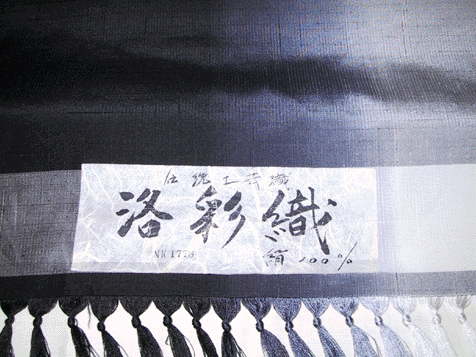 伝統工芸織
洛彩織
NK1773
絹100%